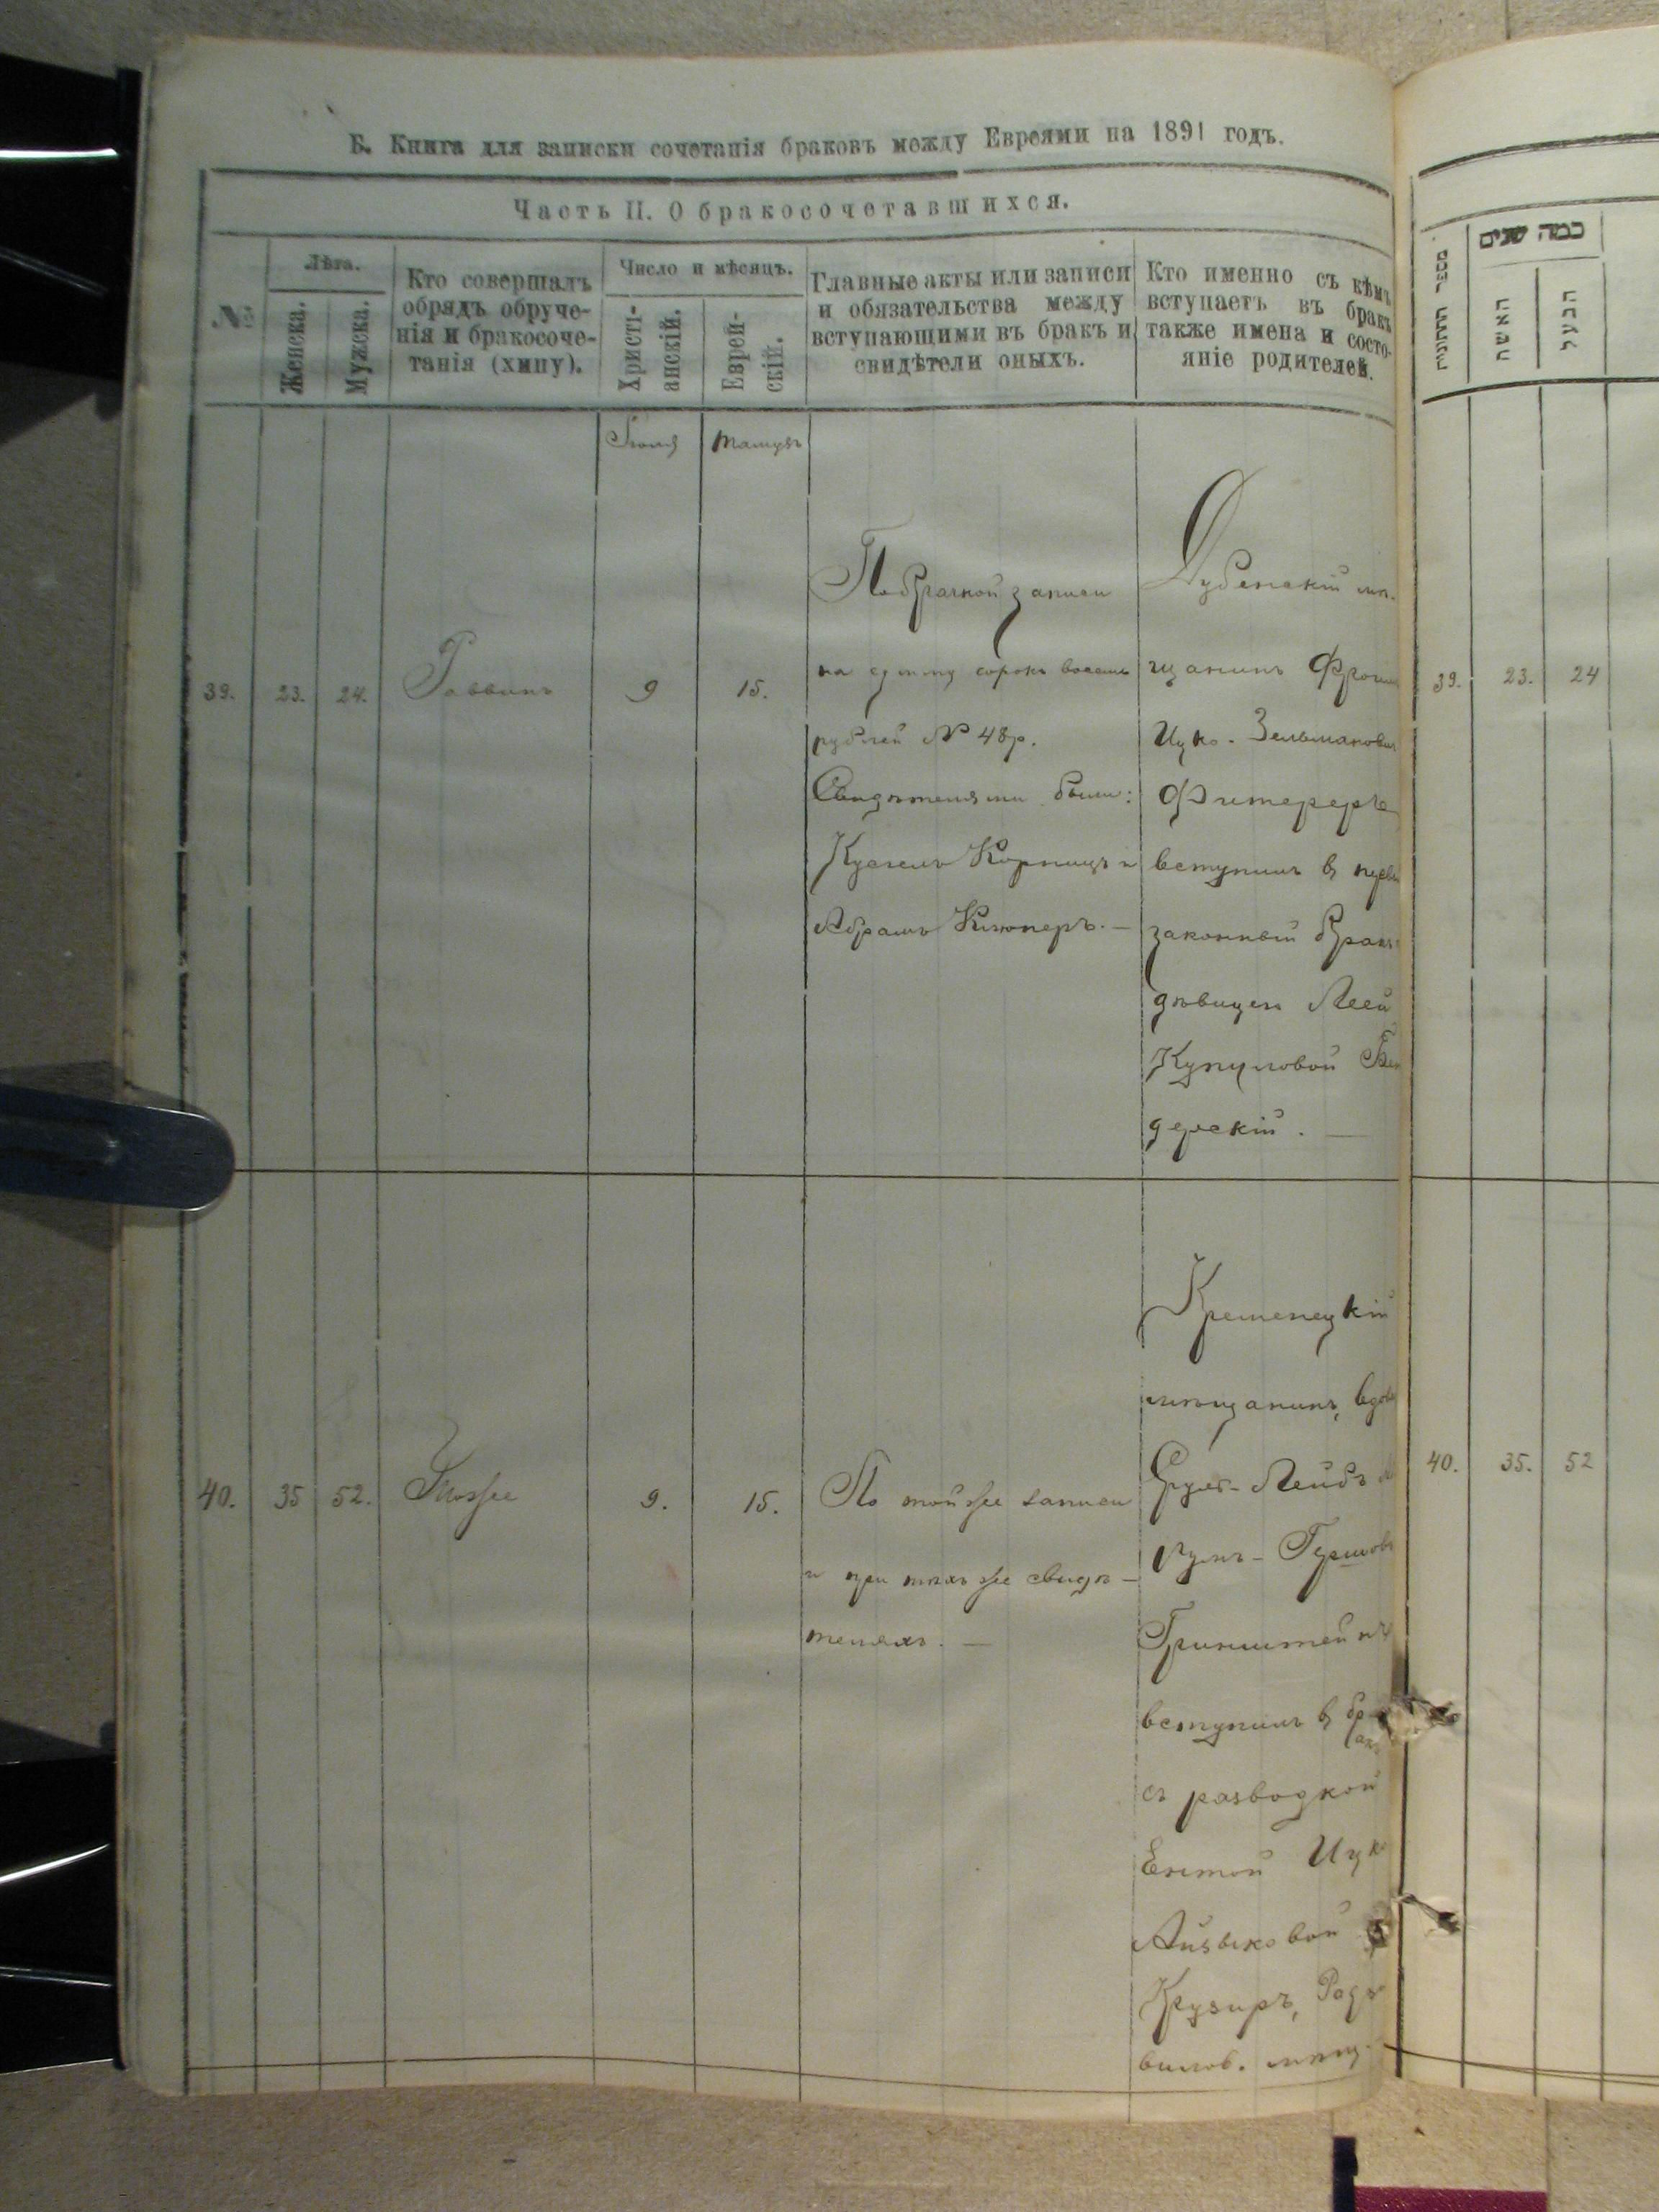 Б. Книга для записки сочетанія браковъ между Евреями на 1891 годъ.
Часть II. О бракосочетавшихся.
№
Лѣта.
Женска.
Мужска.
Кто совершалъ
обрядъ обруче-
нія и бракосоче-
танія (хипу).
Число и мѣсяцъ.
Христі-
анскій.
Еврей-
скій.
Главные акты или записи
и обязательства между
вступающими въ бракъ и
свидѣтели оныхъ.
Кто именно съ кѣмъ
вступаетъ въ бракъ
также имена и состо-
яніе родителей.
Тамузъ
39.
23.
24.
Раввинъ
9
15.
По брачной записи
на сумму сорокъ восемь
рублей № 48р.
Свидѣтелями были:
Абрамъ
Дубенскій мѣ-
щанинъ
Ицко-Зельманович
Фитереръ
вступилъ въ
законный бракъ
дѣвицею Леей
дерскій.
40.
35
52.
9.
15.
По той же записи
и при тѣхъ же свидѣ-
теляхъ.
Кременецкій
мѣщанинъ, вдов
Лейбъ
Гринштейнъ
вступилъ въ бр
акъ
съ разводкой
Ицко
Айзыковой
вилов. мѣщ.
מספר החתונות
כמה שנים
האשה
הבעל
39.
23.
24
40.
35.
52